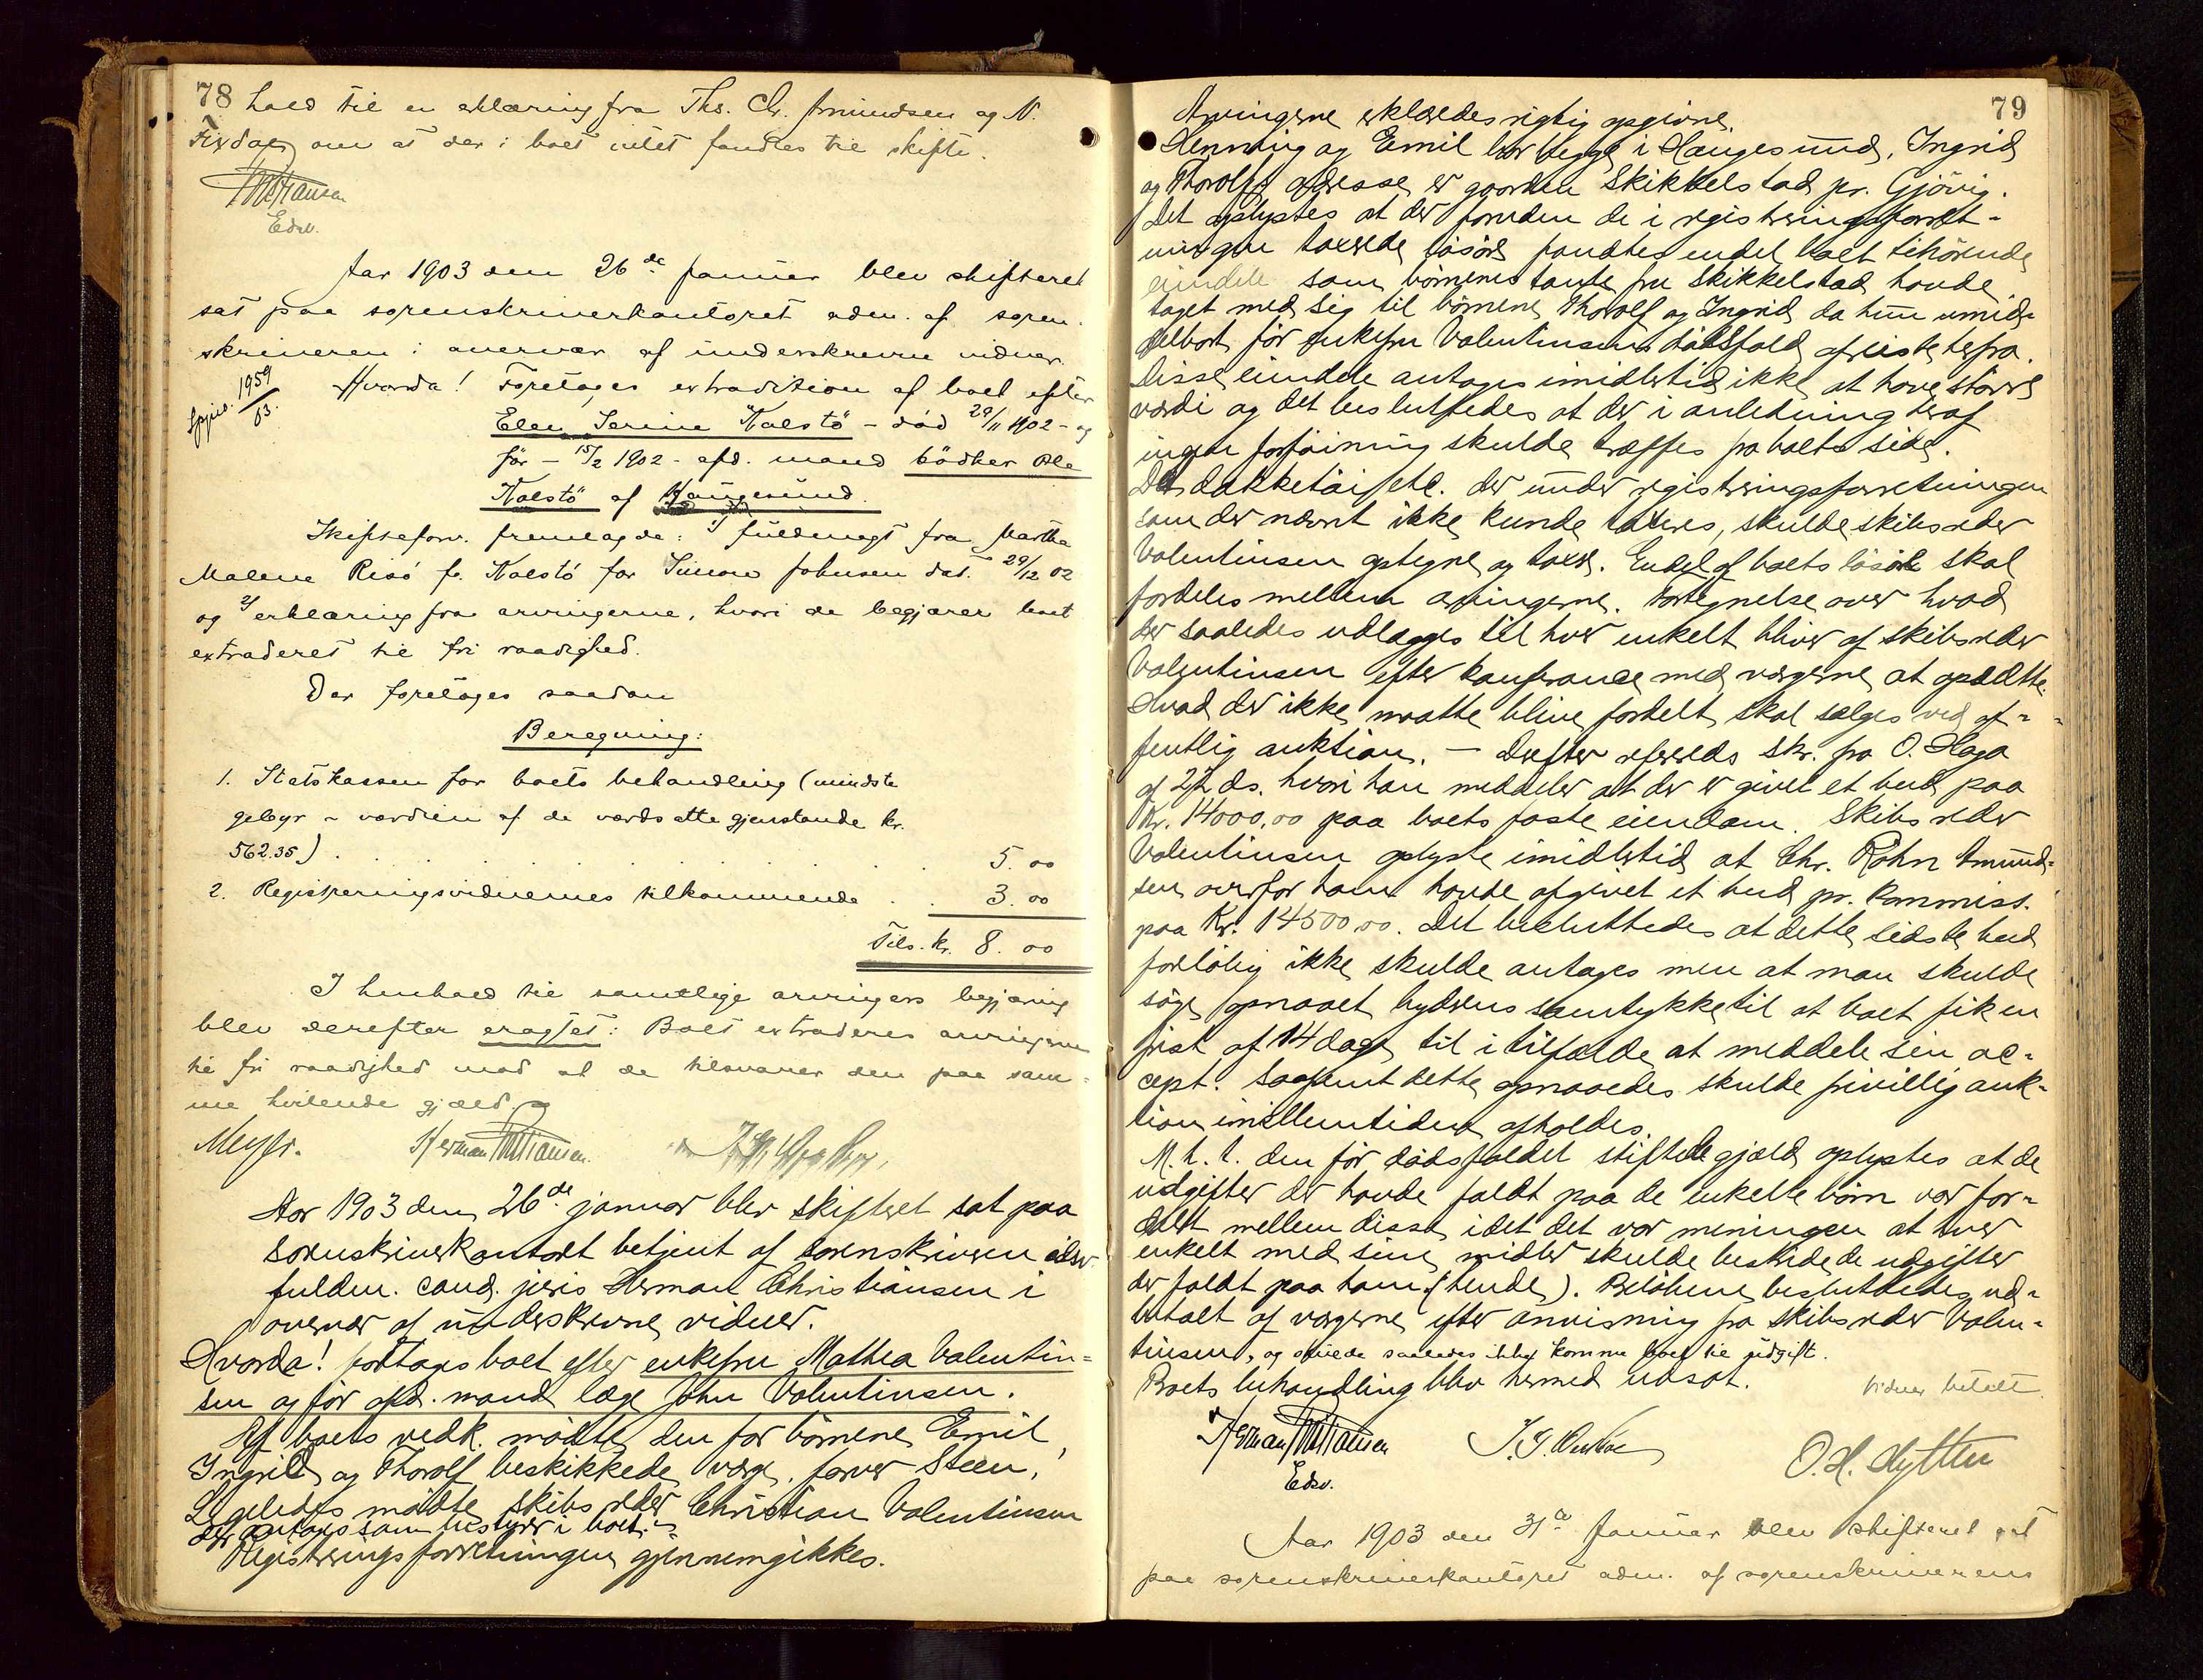 78 hold til en erklæring fra Ths. Chr. Amundsen og N.
Fixdal om at der i boet intet fandtes til skifte.
HChristiansen
Edsv.
Aar 1903 den 26de januar blev skifteret
sat paa sorenskriverkontoret adm. af soren-
skriveren i overvær af underskrevne vidner.
Spjss. 1959/03. Hvorda! Foretages extradition af boet efter
Elen Serine Kalstö - död 29/11 1902 - og
för - 15/2 1902 - afd. mand bödker Ole
Kalstö af Haugesund.
Skifteforv. fremlagde: 1/ fuldmagt fra Martha
Malene Risö f. Kalstö for Simon Johnsen dat. 29/12 02
og 2/ erklæring fra arvingerne, hvori de begjærer boet
extraderet til fri raadighed.
Der foretages saadan
Beregning:
1. Statskassen for boets behandling (mindste
gebyr - værdien af de værdsatte gjenstande kr.
562.35) . . . . . 5.00
2. Registreringsvidnernes tilkommende . . 3.00
Tils. kr. 8.00
I henhold til samtlige arvingers begjæring
blev derefter eragtet: Boet extraderes arvingerne
til fri raadighed mod at de tilsvarer den paa sam-
me hvilende gjæld.
Meyer. Herman Christiansen.
Aar 1903 den 26de januar blev skifteret sat paa
sorenskriverkontoret betjent af sorenskriveren edsv.
fuldm. cand. juris Herman Christiansen i
overvær af underskrevne vidner.
Hvorda! foretages boet efter enkefru Mathea Valentin-
sen og för afd. mand læge John Valentinsen.
Af boets vedk. mödte den for börnene Emil,
Ingrid og Thorolf beskikkede værge, farver Steen,
Ligeledes mödte skibsreder Christian Valentinsen
der antages som bestyrer i boet.
Registreringsforretningen gjennemgikkes.
79
Arvingerne erklæredes rigtig opgivne.
Henning og Emil bor begge i Haugesund, Ingrid
og Thorolfs adresse er gaarden Skikkelstad pr. Gjövig.
Det oplystes at der foruden de i registreringsforret-
ningen taxerede lösöre fandtes endel boet tilhörende
eiendele som börnenes tante fru Skikkelstad havde
taget med sig til börnene Thorolf og Ingrid da hun umid-
delbart för enkefru Valentinsens dödsfald afreiste herfra.
Disse eiendele antages imidlertid ikke at have större
værdi og det besluttedes at der i anledning deraf
ingen forföining skulde træffes fra boets side.
Det dækketöi etc. der under registreringsforretningen
som der nævnt ikke kunde taxeres, skulde skibsreder
Valentinsen optegne og taxere. Endel af boets lösöre skal
fordeles mellem arvingerne. Fortegnelse over hvad
der saaledes udlægges til hver enkelt bliver af skibsreder
Valentinsen efter konferance med værgerne at opsætte.
Hvad der ikke maatte blive fordelt skal sælges ved of-
fentlig auktion. - Derefter refereredes skr. fra O. Haga
af 22 ds. hvori han meddeler at der er givet et bud paa
Kr. 14000,00 paa boets faste eiendom. Skibsreder
Valentinsen oplyste imidlertid at Chr. Röhn Amund-
sen overfor ham havde afgivet et bud pr. kommiss.
paa Kr. 14500,00. Det besluttedes at dette sidste bud
forlöbig ikke skulde antages men at man skulde
söge opnaaet byderens samtykke til at boet fik en
frist af 14 dage til i tilfælde at meddele sin ac-
cept. Saafremt dette opnaaedes skulde frivillig auk-
tion imellemtiden afholdes.
M.h.t. den för dödsfaldet stiftede gjæld oplystes at de
udgifter der havde faldt paa de enkelte börn var for-
delt mellem disse idet det var meningen at hver
enkelt med sine midler skulde bestride de udgifter
der faldt paa ham (hende). Belöbene besluttedes ud-
betalt af værgerne efter anvisning fra skibsreder Valen-
tinsen, og skulde saaledes ikke komme boet til udgift.
Boets behandling blev hermed udsat. Vidner betalt.
Herman Christiansen
Edsv.
O. H. Hytten
Aar 1903 den 31te januar blev skifteret sat
paa sorenskriverkontoret adm. af sorenskriverens